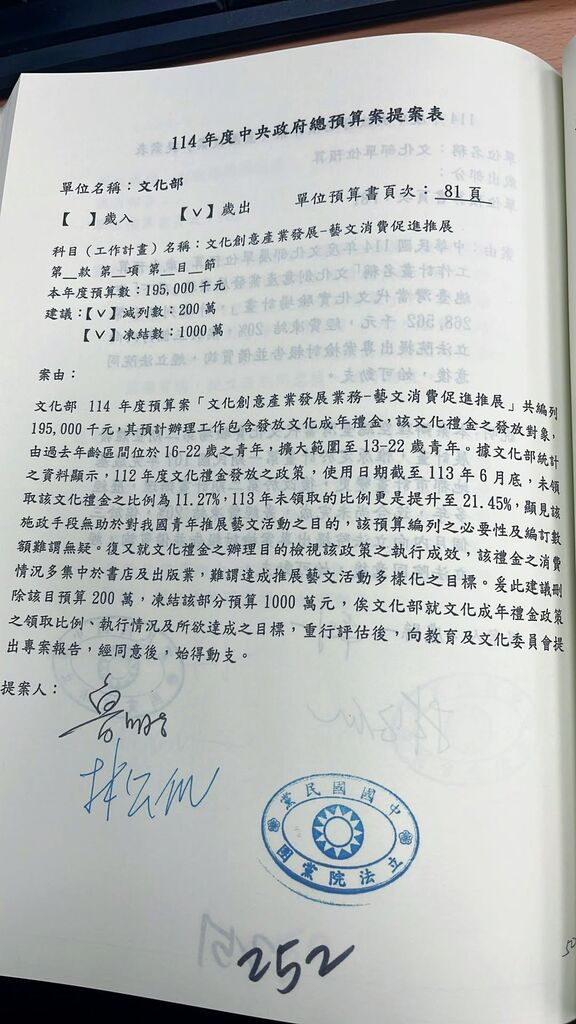 114 年度中央政府總預算案提案表
單位名稱：文化部
單位預算書頁次： 81 頁
【 】歲入 【V】歲出
科目（工作計畫）名稱：文化創意產業發展-藝文消費促進推展
第__款 第__項 第__目__節
本年度預算數：195,000 千元
建議：【V】減列數：200 萬
【V】凍結數：1000 萬
案由：
文化部 114 年度預算案「文化創意產業發展業務-藝文消費促進推展」共編列
195,000 千元，其預計辦理工作包含發放文化成年禮金，該文化禮金之發放對象，
由過去年齡區間位於 16-22 歲之青年，擴大範圍至 13-22 歲青年。據文化部統計
之資料顯示，112 年度文化禮金發放之政策，使用日期截至 113 年 6 月底，未領
取該文化禮金之比例為 11.27%，113 年未領取的比例更是提升至 21.45%，顯見該
施政手段無助於對我國青年推展藝文活動之目的，該預算編列之必要性及編訂數
額難謂無疑。復又就文化禮金之辦理目的檢視該政策之執行成效，該禮金之消費
情況多集中於書店及出版業，難謂達成推展藝文活動多樣化之目標。爰此建議刪
除該目預算 200 萬，凍結該部分預算 1000 萬元，俟文化部就文化成年禮金政策
之領取比例、執行情況及所欲達成之目標，重行評估後，向教育及文化委員會提
出專案報告，經同意後，始得動支。
提案人：
中國國民黨
立法院黨團
252